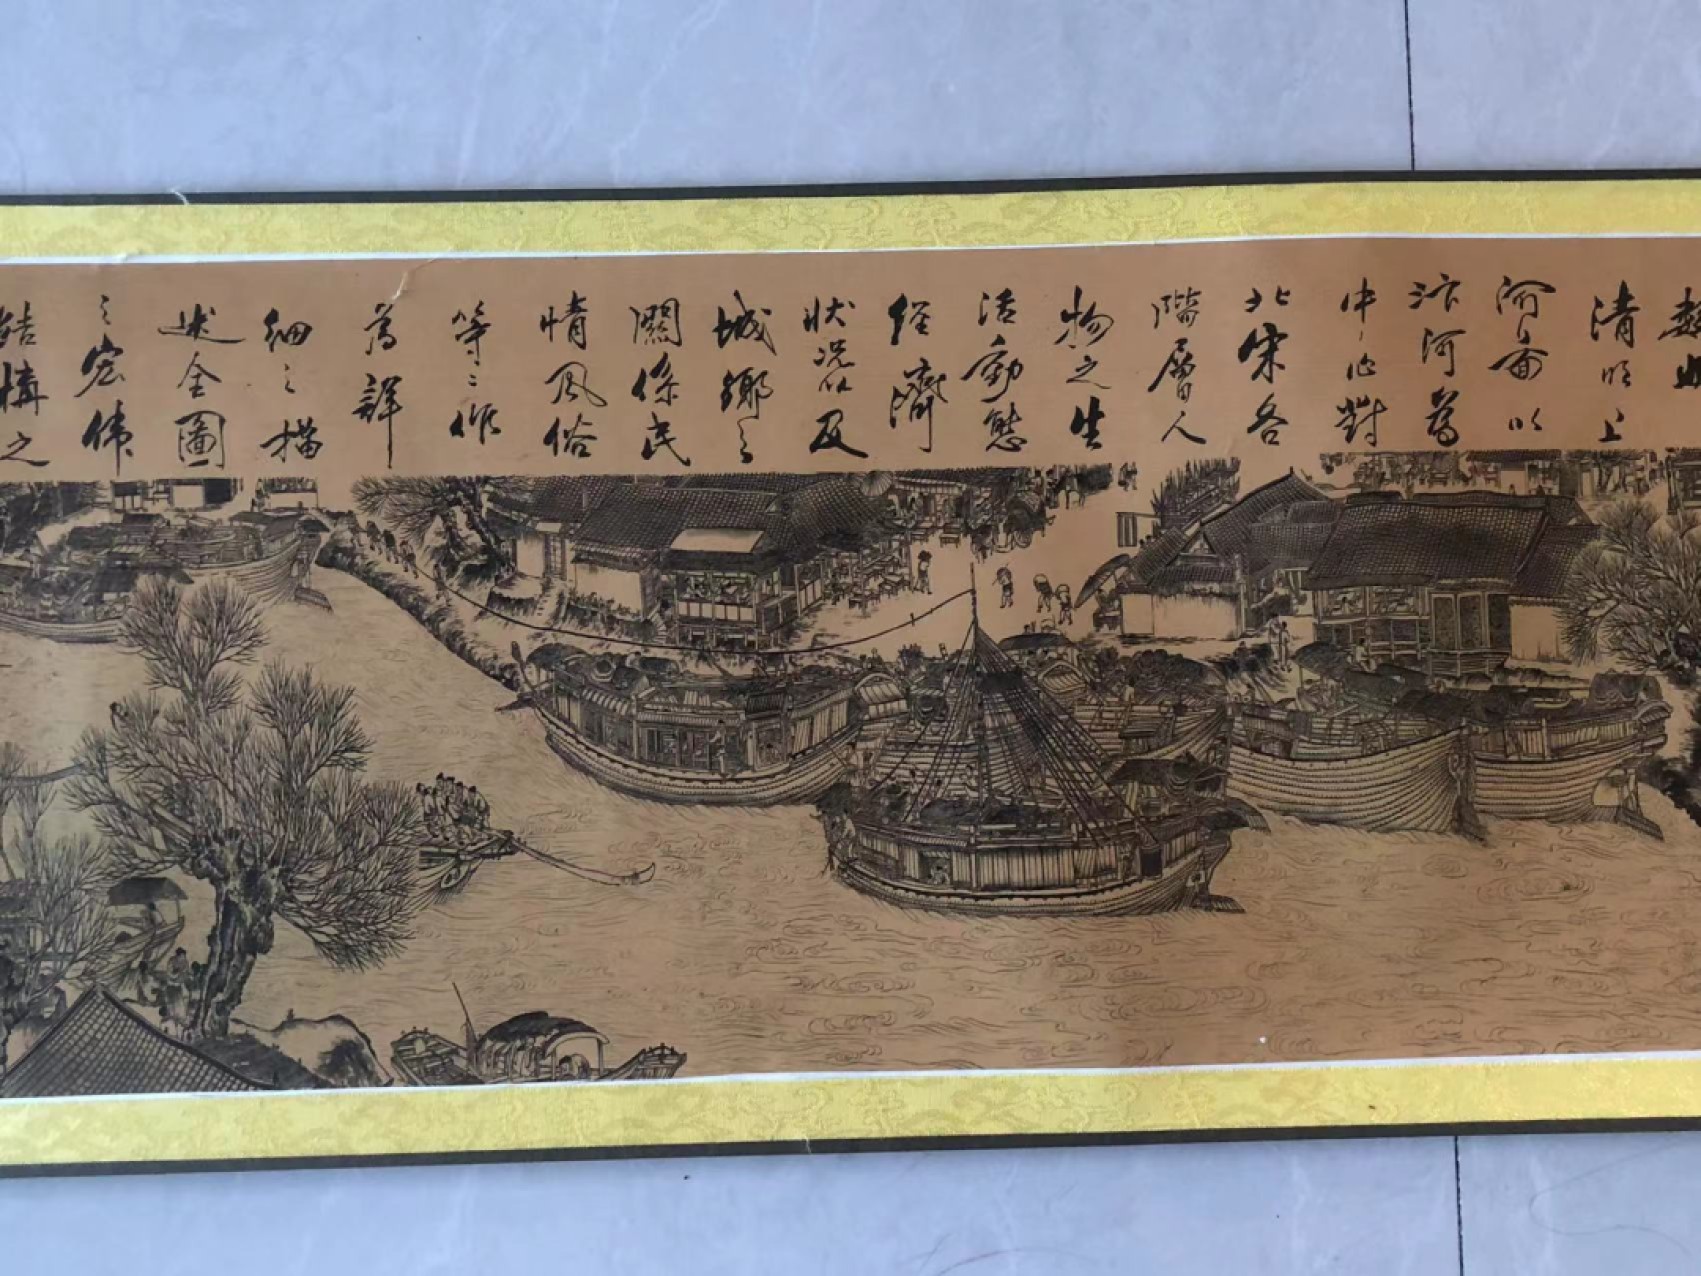 清明上
河畫面以
汴河為
中心對
北宋各
階層人
物之生
活動態
經濟
狀況以及
城鄉之
關係民
情風俗
等等作
為詳
細之描
述全圖
之宏偉
結構之